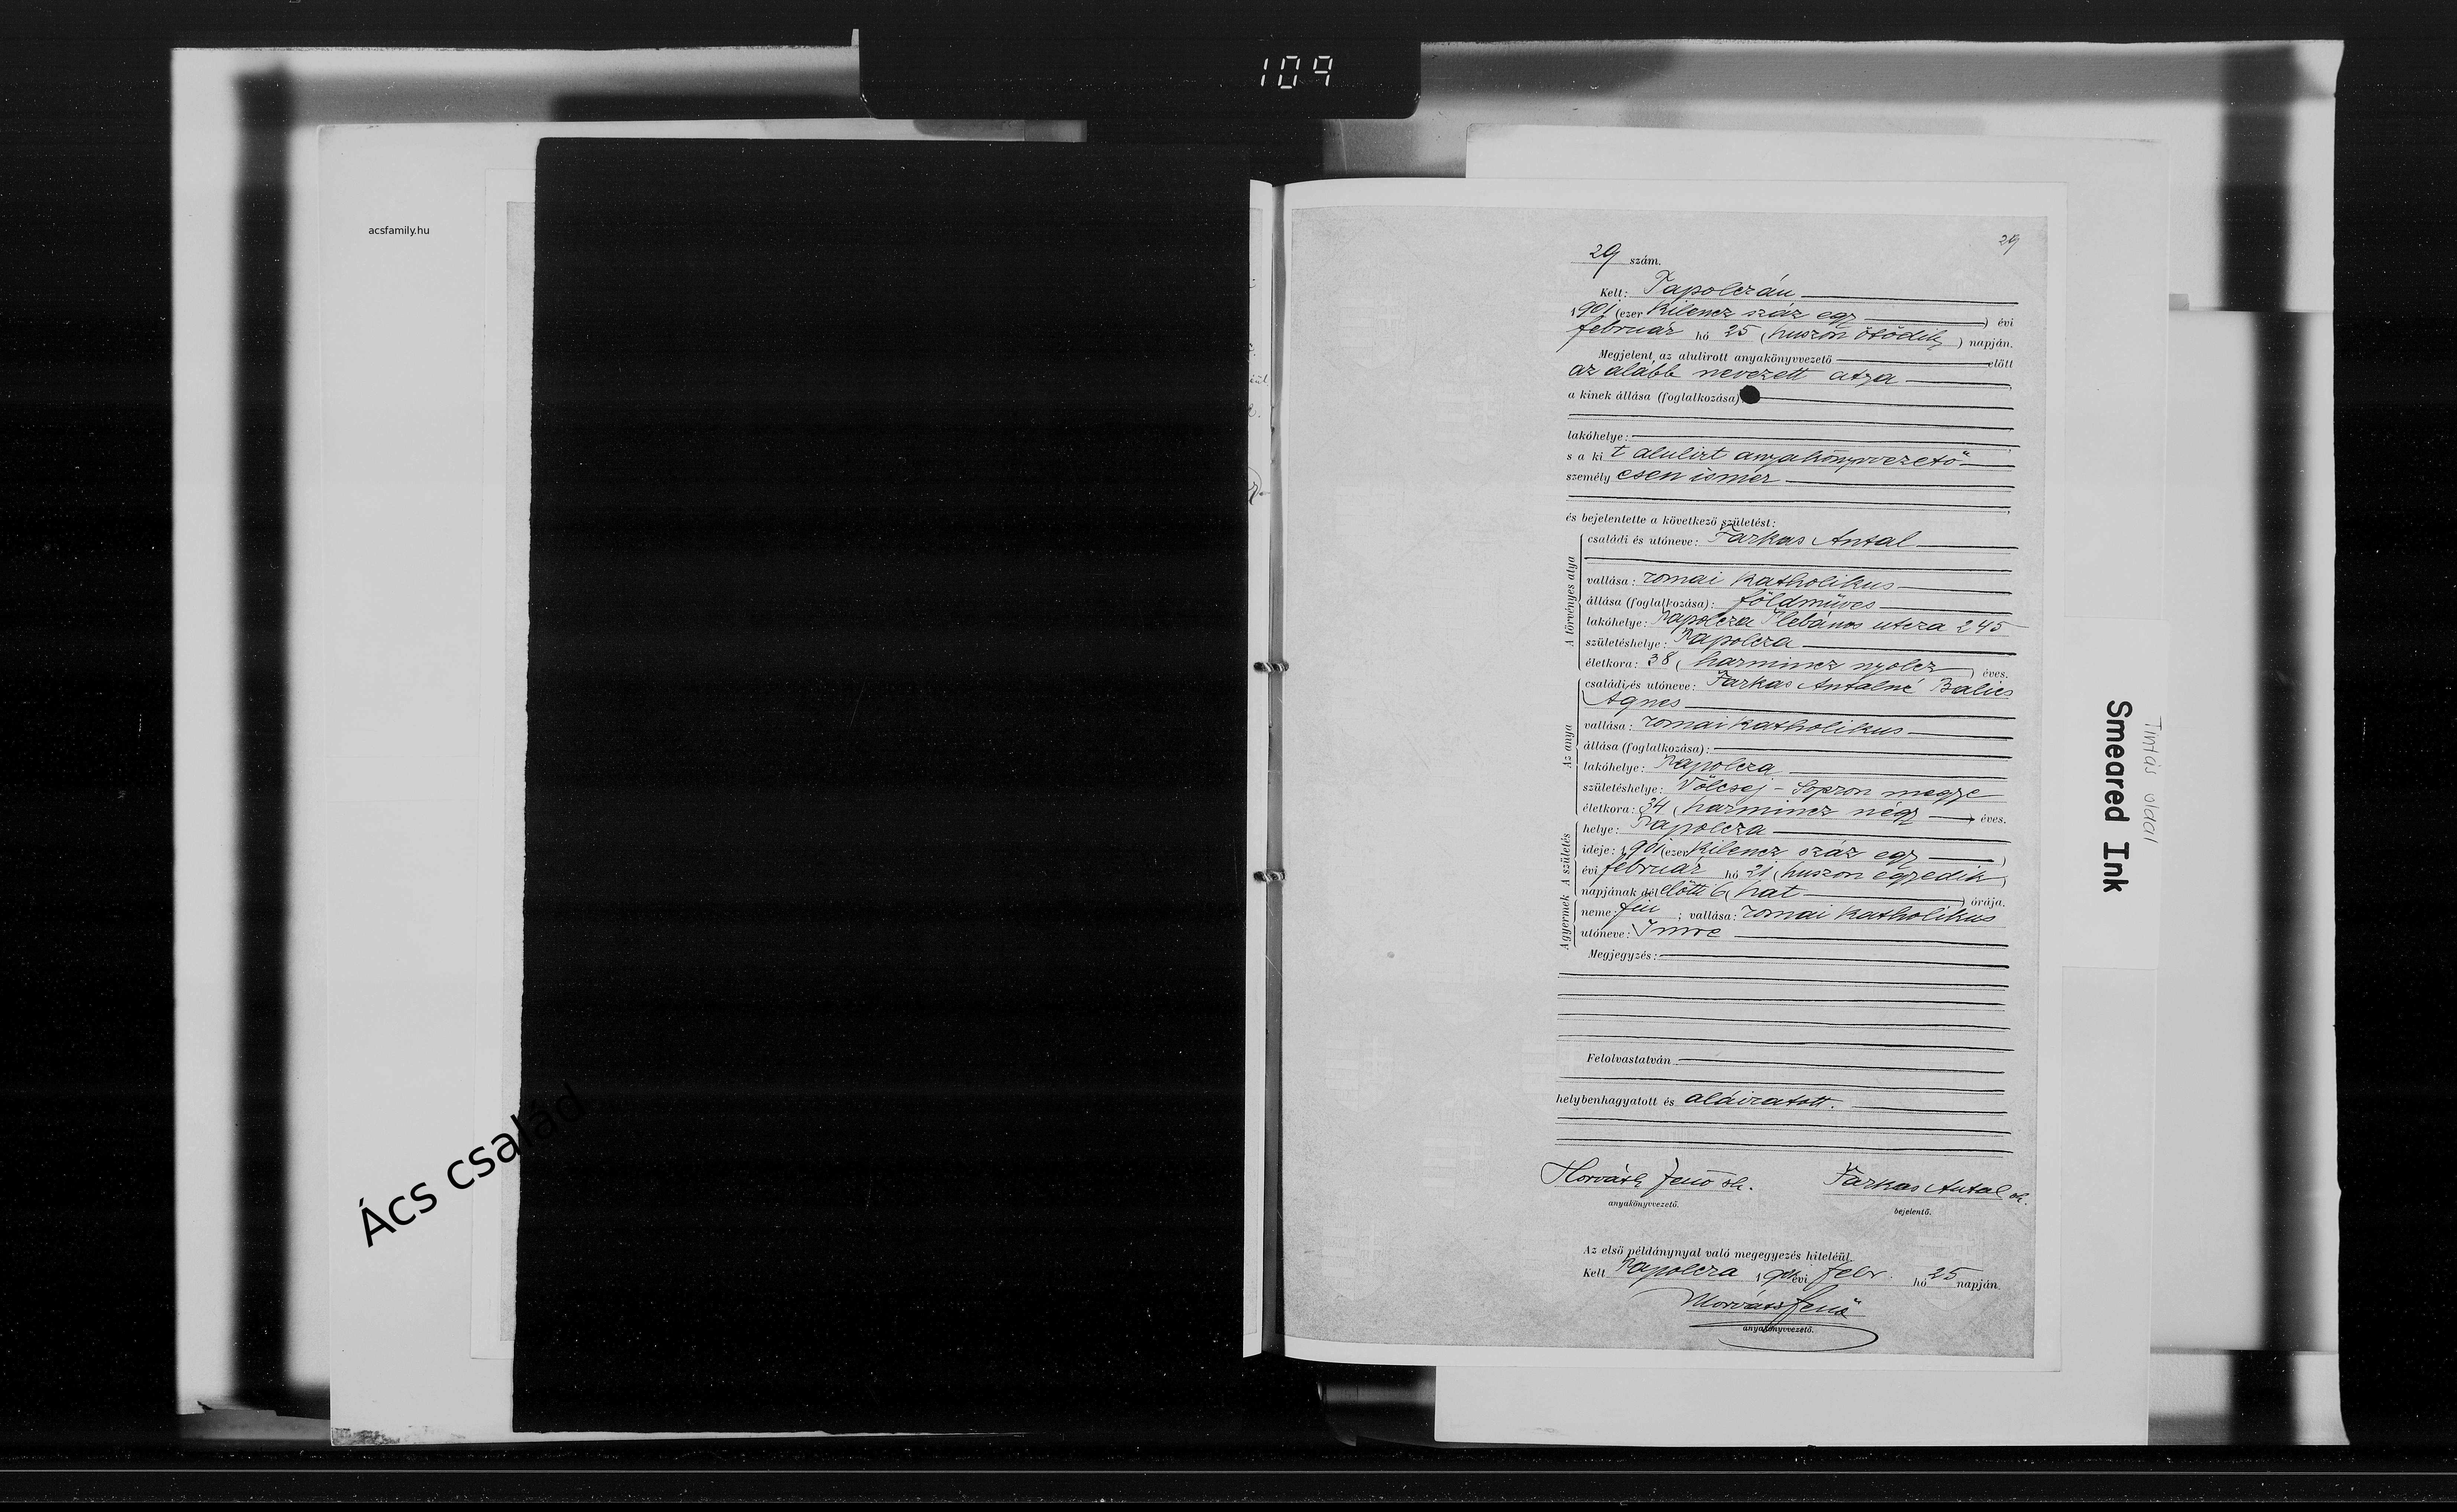 109
acsfamily.hu
29
29 szám.
Kelt: Tapolczán
1901 (ezer kilencz száz egy) évi
február hó 25 (huszon ötödik) napján.
Megjelent az alulirott anyakönyvvezető előtt
az alább nevezett atya
a kinek állása (foglalkozása)
lakóhelye:
s a kit alulirt anyakönyvvezető
személyesen ismer
és bejelentette a következő születést:
A törvényes atya
családi és utóneve: Farkas Antal
vallása: romai katholikus
állása (foglalkozása): földmüves
lakóhelye: Tapolcza Plebános utcza 245
születéshelye: Tapolcza
életkora: 38 (harmincz nyolcz) éves.
Az anya
családi és utóneve: Farkas Antalné Balics
Agnes
vallása: romai katholikus
állása (foglalkozása):
lakóhelye: Tapolcza
születéshelye: Völcsej - Sopron megye
életkora: 34 (harmincz négy) éves.
A születés
helye: Tapolcza
ideje: 1901 (ezer kilencz száz egy)
évi február hó 21 (huszon egyedik)
napjának délelőtti 6 (hat) órája.
A gyermek
neme: fiu; vallása: romai katholikus
utóneve: Imre
Megjegyzés:
Felolvastatván
helybenhagyatott és aláiratott.
Horváth Jenő sk.
anyakönyvvezető.
Farkas Antal sk.
bejelentő.
Az első példánynyal való megegyezés hiteléül.
Kelt Tapolcza 1901 évi febr. hó 25 napján
Horváth Jenő
anyakönyvvezető.
Tintás oldal
Smeared Ink
Ács család